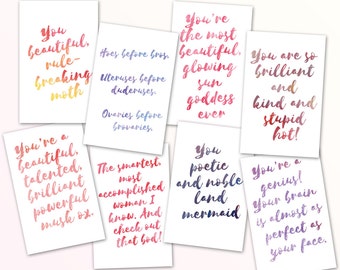 You
beautiful,
rule-
breaking
moth
Hoes before bros.
Uteruses before
duderuses.
Ovaries before
brovaries.
You're
the most
beautiful,
glowing
sun
goddess
ever
You are so
brilliant
and
kind and
stupid
hot!
You're a
beautiful,
talented,
brilliant
powerful
musk ox.
The smartest,
most
accomplished
woman I
know. And
check out
that bod!
You
poetic
and noble
land
mermaid
You're a
genius!
Your brain
is almost as
perfect as
your face.